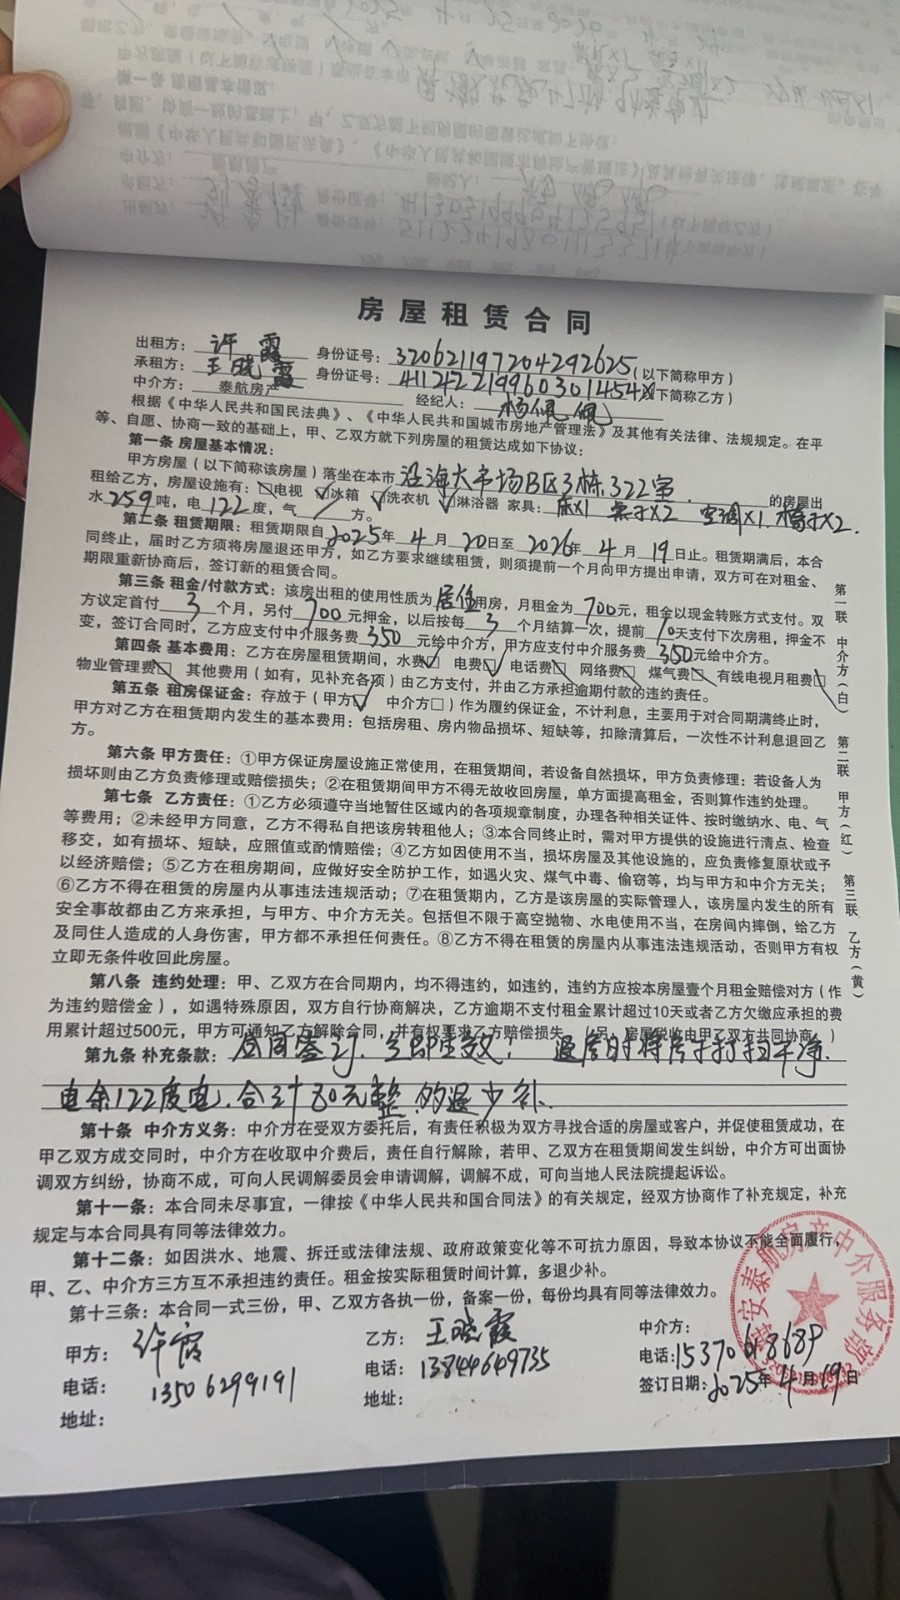 房屋租赁合同
出租方：许霞 身份证号：320621197204292625(以下简称甲方)
承租方：王晓霞 身份证号：411242219960301454X(以下简称乙方)
中介方：泰航房产 经纪人：杨佩佩
根据《中华人民共和国民法典》、《中华人民共和国城市房地产管理法》及其他有关法律、法规规定。在平
等、自愿、协商一致的基础上，甲、乙双方就下列房屋的租赁达成如下协议：
第一条 房屋基本情况：
甲方房屋（以下简称该房屋）落坐在本市沿海大市场B区3栋322室.的房屋出
租给乙方，房屋设施有：□电视 ☑冰箱 ☑洗衣机 ☑淋浴器 家具：床X1 桌子X2 空调X1. 椅子X2.
水259吨，电122度，气/方。
第二条 租赁期限：租赁期限自2025年4月20日至2026年4月19日止。租赁期满后，本合
同终止，届时乙方须将房屋退还甲方，如乙方要求继续租赁，则须提前一个月向甲方提出申请，双方可在对租金、
期限重新协商后，签订新的租赁合同。
第三条 租金/付款方式：该房出租的使用性质为居住用房，月租金为700元，租金以现金转账方式支付。双
方议定首付3个月，另付700元押金，以后按每3个月结算一次，提前10天支付下次房租，押金不
变，签订合同时，乙方应支付中介服务费350元给中介方，甲方应支付中介服务费350元给中介方。
第四条 基本费用：乙方在房屋租赁期间，水费☑ 电费☑ 电话费□ 网络费□ 煤气费□ 有线电视月租费□
物业管理费□ 其他费用（如有，见补充各项）由乙方支付，并由乙方承担逾期付款的违约责任。
第五条 租房保证金：存放于（甲方☑ 中介方□）作为履约保证金，不计利息，主要用于对合同期满终止时，
甲方对乙方在租赁期内发生的基本费用：包括房租、房内物品损坏、短缺等，扣除清算后，一次性不计利息退回乙
方。
第六条 甲方责任：①甲方保证房屋设施正常使用，在租赁期间，若设备自然损坏，甲方负责修理：若设备人为
损坏则由乙方负责修理或赔偿损失；②在租赁期间甲方不得无故收回房屋，单方面提高租金，否则算作违约处理。
第七条 乙方责任：①乙方必须遵守当地暂住区域内的各项规章制度，办理各种相关证件、按时缴纳水、电、气
等费用；②未经甲方同意，乙方不得私自把该房转租他人；③本合同终止时，需对甲方提供的设施进行清点、检查
移交，如有损坏、短缺，应照值或酌情赔偿；④乙方如因使用不当，损坏房屋及其他设施的，应负责修复原状或予
以经济赔偿；⑤乙方在租房期间，应做好安全防护工作，如遇火灾、煤气中毒、偷窃等，均与甲方和中介方无关；
⑥乙方不得在租赁的房屋内从事违法违规活动；⑦在租赁期内，乙方是该房屋的实际管理人，该房屋内发生的所有
安全事故都由乙方来承担，与甲方、中介方无关。包括但不限于高空抛物、水电使用不当，在房间内摔倒，给乙方
及同住人造成的人身伤害，甲方都不承担任何责任。⑧乙方不得在租赁的房屋内从事违法违规活动，否则甲方有权
立即无条件收回此房屋。
第八条 违约处理：甲、乙双方在合同期内，均不得违约，如违约，违约方应按本房屋壹个月租金赔偿对方（作
为违约赔偿金），如遇特殊原因，双方自行协商解决，乙方逾期不支付租金累计超过10天或者乙方欠缴应承担的费
用累计超过500元，甲方可通知乙方解除合同，并有权要求乙方赔偿损失。（另：房屋税收由甲乙双方共同协商。）
第九条 补充条款：合同签订，立即生效！退房时将房子打扫干净.
电余122度电.合计80元整 多退少补.
第十条 中介方义务：中介方在受双方委托后，有责任积极为双方寻找合适的房屋或客户，并促使租赁成功，在
甲乙双方成交同时，中介方在收取中介费后，责任自行解除，若甲、乙双方在租赁期间发生纠纷，中介方可出面协
调双方纠纷，协商不成，可向人民调解委员会申请调解，调解不成，可向当地人民法院提起诉讼。
第十一条：本合同未尽事宜，一律按《中华人民共和国合同法》的有关规定，经双方协商作了补充规定，补充
规定与本合同具有同等法律效力。
第十二条：如因洪水、地震、拆迁或法律法规、政府政策变化等不可抗力原因，导致本协议不能全面履行，
甲、乙、中介方三方互不承担违约责任。租金按实际租赁时间计算，多退少补。
第十三条：本合同一式三份，甲、乙双方各执一份，备案一份，每份均具有同等法律效力。
甲方：许霞 乙方：王晓霞 中介方：
电话：13506299191 电话：13844649735 电话：
地址： 地址： 签订日期：2025年4月19日
第一联 中介方（白） 第二联 甲方（红） 第三联 乙方（黄）
安泰航房产中介服务部